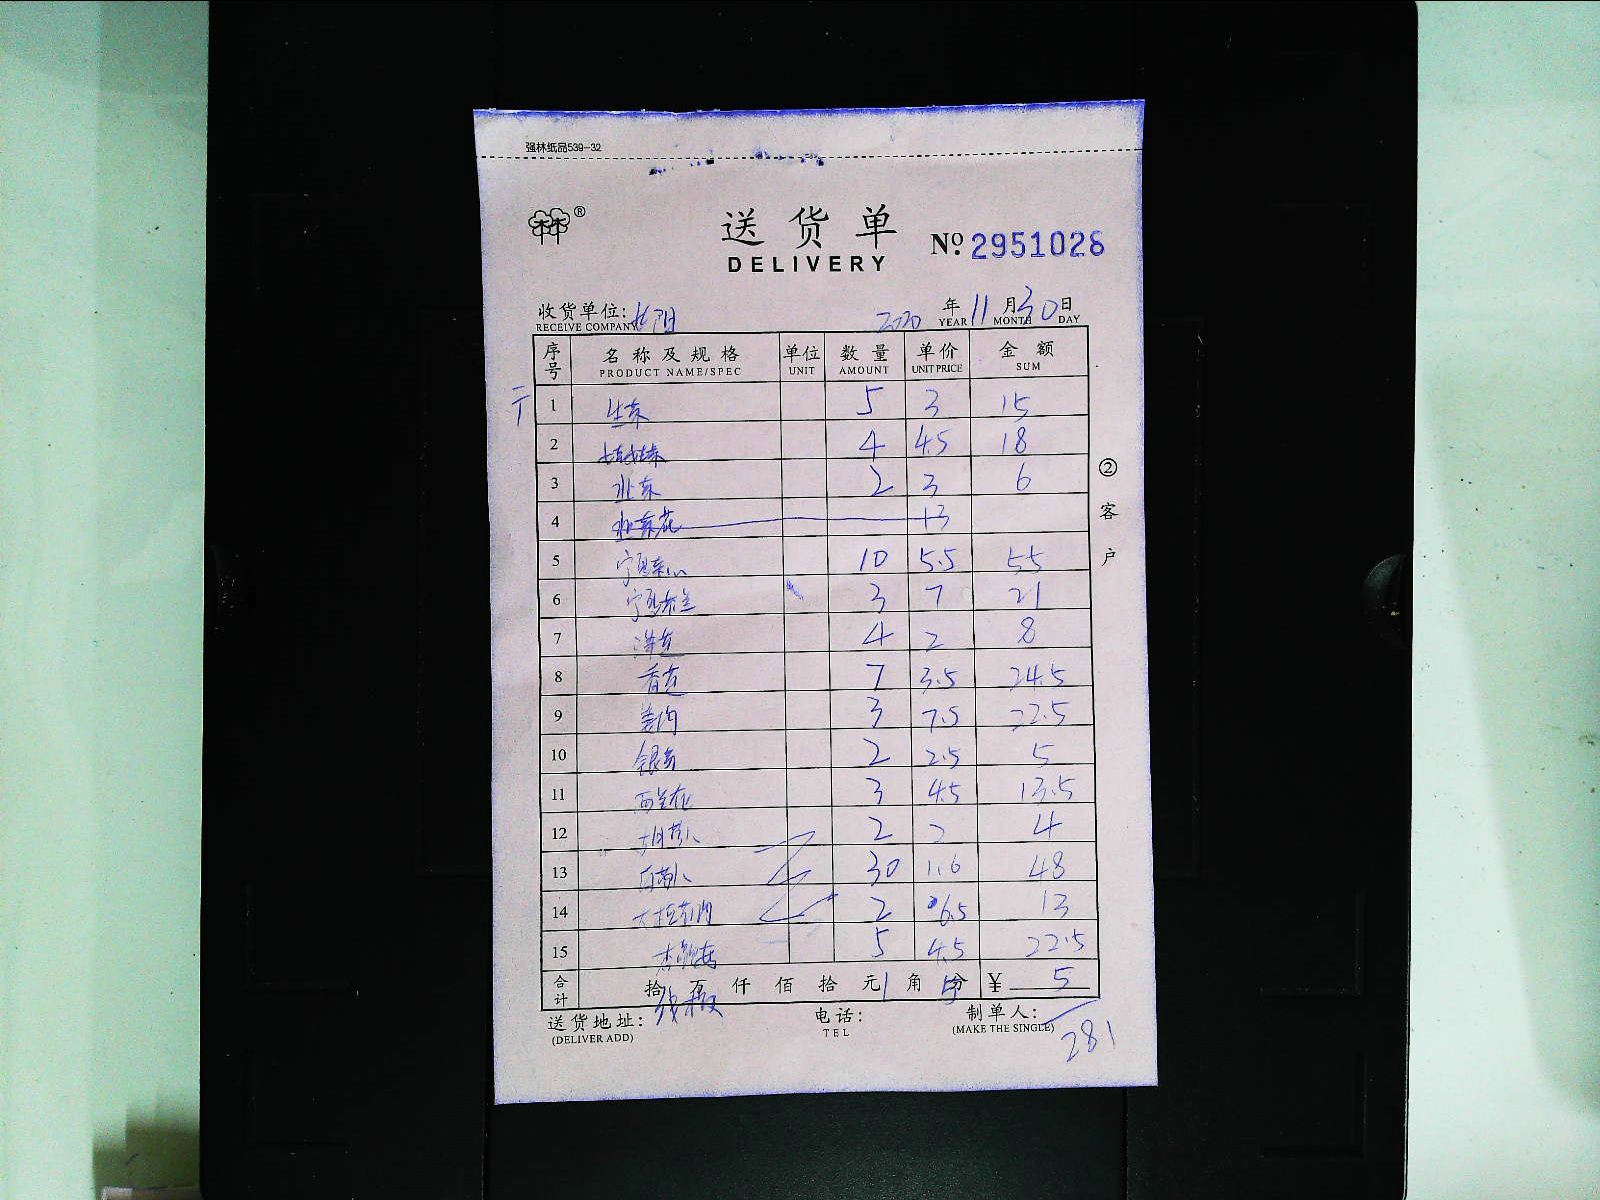 强林纸品539-32
林林®
送货单 №2951028
DELIVERY
收货单位: 2020 年 11 月 30 日
RECEIVE COMPANY YEAR MONTH DAY
序号 名称及规格 单位 数量 单价 金额
PRODUCT NAME/SPEC UNIT AMOUNT UNIT PRICE SUM
1 生菜 5 3 15
2 4 4.5 18
3 2 3 6
4 13
5 宁夏菜心 10 5.5 55
6 3 7 21
7 4 2 8
8 香芹 7 3.5 24.5
9 姜肉 3 7.5 22.5
10 银芽 2 2.5 5
11 西兰花 3 4.5 13.5
12 胡萝卜 2 2 4
13 白萝卜 30 1.6 48
14 2 6.5 13
15 5 4.5 22.5
合计 拾 万 仟 佰 拾 元 1 角 分 ¥ 5
线椒
送货地址: 电话: 制单人:
(DELIVER ADD) TEL (MAKE THE SINGLE)
281
②客户